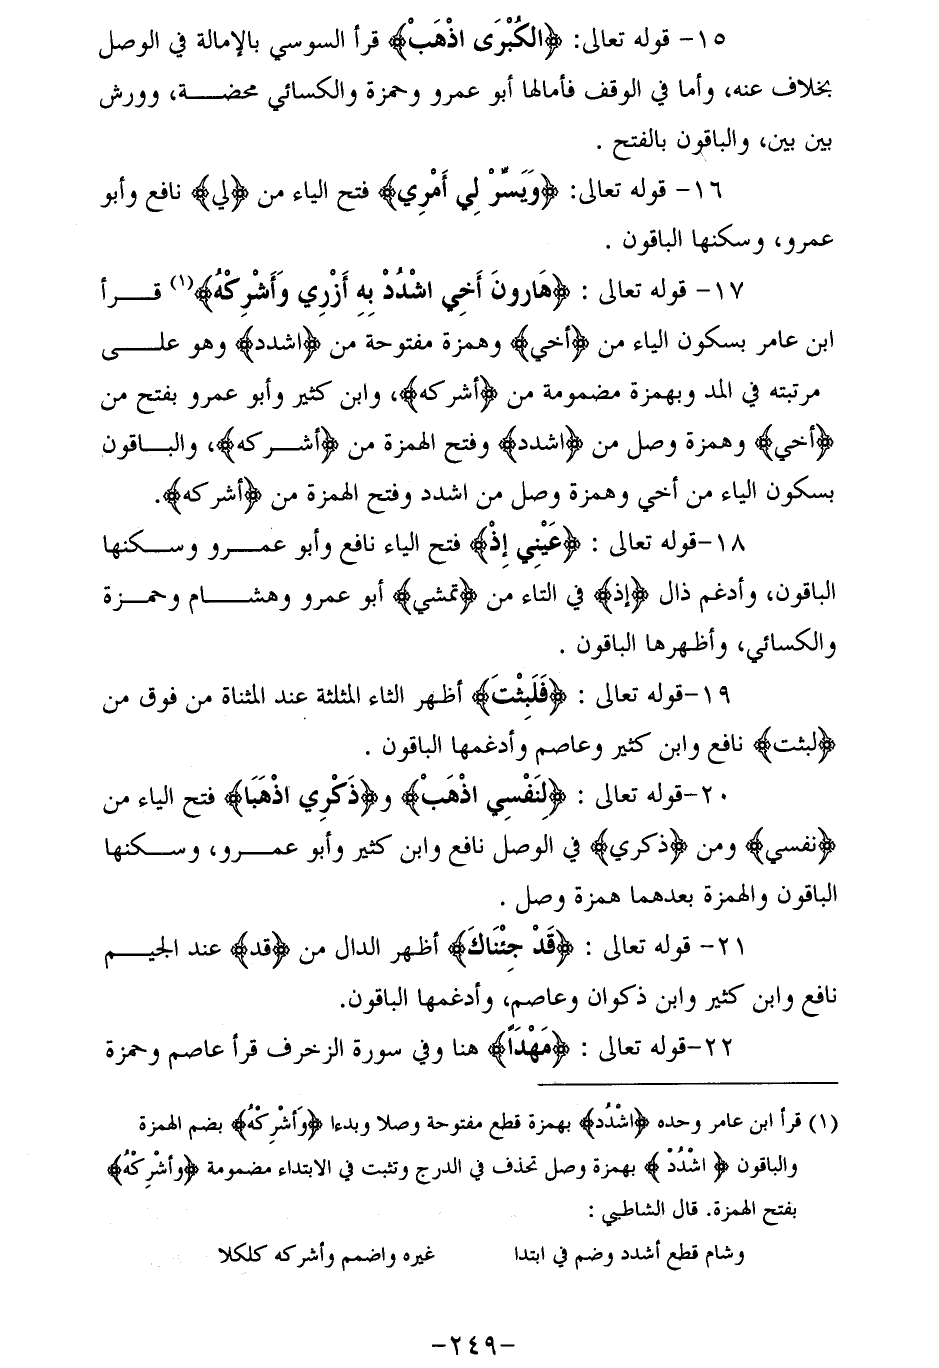 ١٥- قوله تعالى: ﴿الكُبْرَى اذْهَبْ﴾ قرأ السوسي بالإمالة في الوصل
بخلاف عنه، وأما في الوقف فأمالها أبو عمرو وحمزة والكسائي محضة، وورش
بين بين، والباقون بالفتح .
١٦- قوله تعالى: ﴿وَيَسِّرْ لِي أَمْرِي﴾ فتح الياء من ﴿لي﴾ نافع وأبو
عمرو، وسكنها الباقون .
١٧- قوله تعالى : ﴿هَارونَ أَخِي اشْدُدْ بِهِ أَزْرِي وَأَشْرِكْهُ﴾(١) قرأ
ابن عامر بسكون الياء من ﴿أخي﴾ وهمزة مفتوحة من ﴿اشدد﴾ وهو على
مرتبته في المد وبهمزة مضمومة من ﴿أشركه﴾، وابن كثير وأبو عمرو بفتح من
﴿أخي﴾ وهمزة وصل من ﴿اشدد﴾ وفتح الهمزة من ﴿أشركه﴾، والباقون
بسكون الياء من أخي وهمزة وصل من اشدد وفتح الهمزة من ﴿أشركه﴾.
١٨-قوله تعالى : ﴿عَيْنِي إِذْ﴾ فتح الياء نافع وأبو عمرو وسكنها
الباقون، وأدغم ذال ﴿إذ﴾ في التاء من ﴿تمشي﴾ أبو عمرو وهشام وحمزة
والكسائي، وأظهرها الباقون .
١٩-قوله تعالى : ﴿فَلَبِثْتَ﴾ أظهر الثاء المثلثة عند المثناة من فوق من
﴿لبثت﴾ نافع وابن كثير وعاصم وأدغمها الباقون .
٢٠-قوله تعالى : ﴿لِنَفْسِي اذْهَبْ﴾ و﴿ذَكْرِي اذْهَبَا﴾ فتح الياء من
﴿نفسي﴾ ومن ﴿ذكري﴾ في الوصل نافع وابن كثير وأبو عمرو، وسكنها
الباقون والهمزة بعدهما همزة وصل .
٢١- قوله تعالى : ﴿قَدْ جِئْنَاكَ﴾ أظهر الدال من ﴿قد﴾ عند الجيم
نافع وابن كثير وابن ذكوان وعاصم، وأدغمها الباقون.
٢٢-قوله تعالى : ﴿مَهْدَاً﴾ هنا وفي سورة الزخرف قرأ عاصم وحمزة
(١) قرأ ابن عامر وحده ﴿اشْدُد﴾ بهمزة قطع مفتوحة وصلا وبدءا ﴿وَأشْرِكْهُ﴾ بضم الهمزة
والباقون ﴿ اشْدُدْ ﴾ بهمزة وصل تحذف في الدرج وتثبت في الابتداء مضمومة ﴿وأشْرِكْهُ﴾
بفتح الهمزة. قال الشاطبي :
وشام قطع أشدد وضم في ابتدا غيره واضمم وأشركه كلكلا
-٢٤٩-